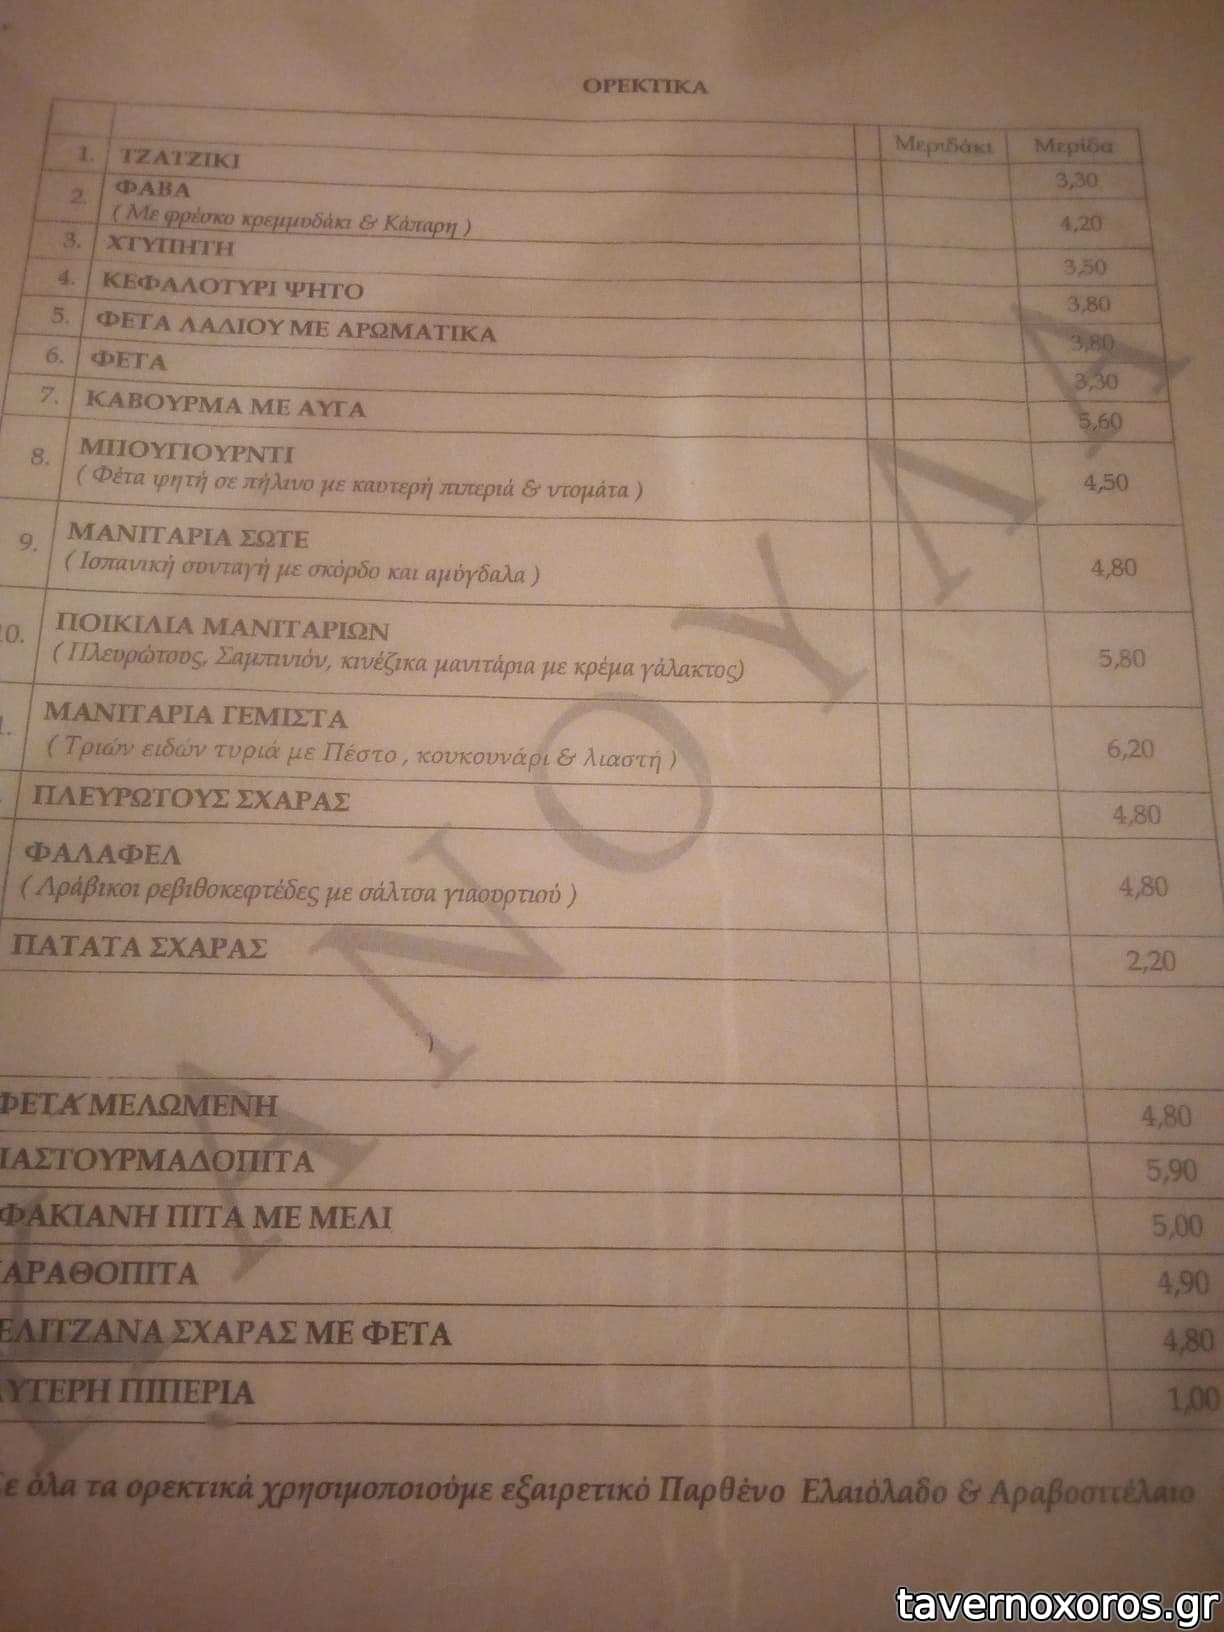 ΟΡΕΚΤΙΚΑ
Μεριδάκι Μερίδα
1. ΤΖΑΤΖΙΚΙ 3,30
2. ΦΑΒΑ
( Με φρέσκο κρεμμυδάκι & Κάπαρη ) 4,20
3. ΧΤΥΠΗΤΗ 3,50
4. ΚΕΦΑΛΟΤΥΡΙ ΨΗΤΟ 3,80
5. ΦΕΤΑ ΛΑΔΙΟΥ ΜΕ ΑΡΩΜΑΤΙΚΑ 3,80
6. ΦΕΤΑ 3,30
7. ΚΑΒΟΥΡΜΑ ΜΕ ΑΥΓΑ 5,60
8. ΜΠΟΥΓΙΟΥΡΝΤΙ
( Φέτα ψητή σε πήλινο με καυτερή πιπεριά & ντομάτα ) 4,50
9. ΜΑΝΙΤΑΡΙΑ ΣΩΤΕ
( Ισπανική συνταγή με σκόρδο και αμύγδαλα ) 4,80
0. ΠΟΙΚΙΛΙΑ ΜΑΝΙΤΑΡΙΩΝ
( Πλευρώτους, Σαμπινιόν, κινέζικα μανιτάρια με κρέμα γάλακτος) 5,80
ΜΑΝΙΤΑΡΙΑ ΓΕΜΙΣΤΑ
( Τριών ειδών τυριά με Πέστο , κουκουνάρι & λιαστή ) 6,20
ΠΛΕΥΡΩΤΟΥΣ ΣΧΑΡΑΣ 4,80
ΦΑΛΑΦΕΛ
( Αράβικοι ρεβιθοκεφτέδες με σάλτσα γιαουρτιού ) 4,80
ΠΑΤΑΤΑ ΣΧΑΡΑΣ 2,20
)
ΦΕΤΑ ΜΕΛΩΜΕΝΗ 4,80
ΑΣΤΟΥΡΜΑΔΟΠΙΤΑ 5,90
ΦΑΚΙΑΝΗ ΠΙΤΑ ΜΕ ΜΕΛΙ 5,00
ΑΡΑΘΟΠΙΤΑ 4,90
ΕΛΙΤΖΑΝΑ ΣΧΑΡΑΣ ΜΕ ΦΕΤΑ 4,80
ΥΤΕΡΗ ΠΙΠΕΡΙΑ 1,00
ε όλα τα ορεκτικά χρησιμοποιούμε εξαιρετικό Παρθένο Ελαιόλαδο & Αραβοσιτέλαιο
tavernoxoros.gr